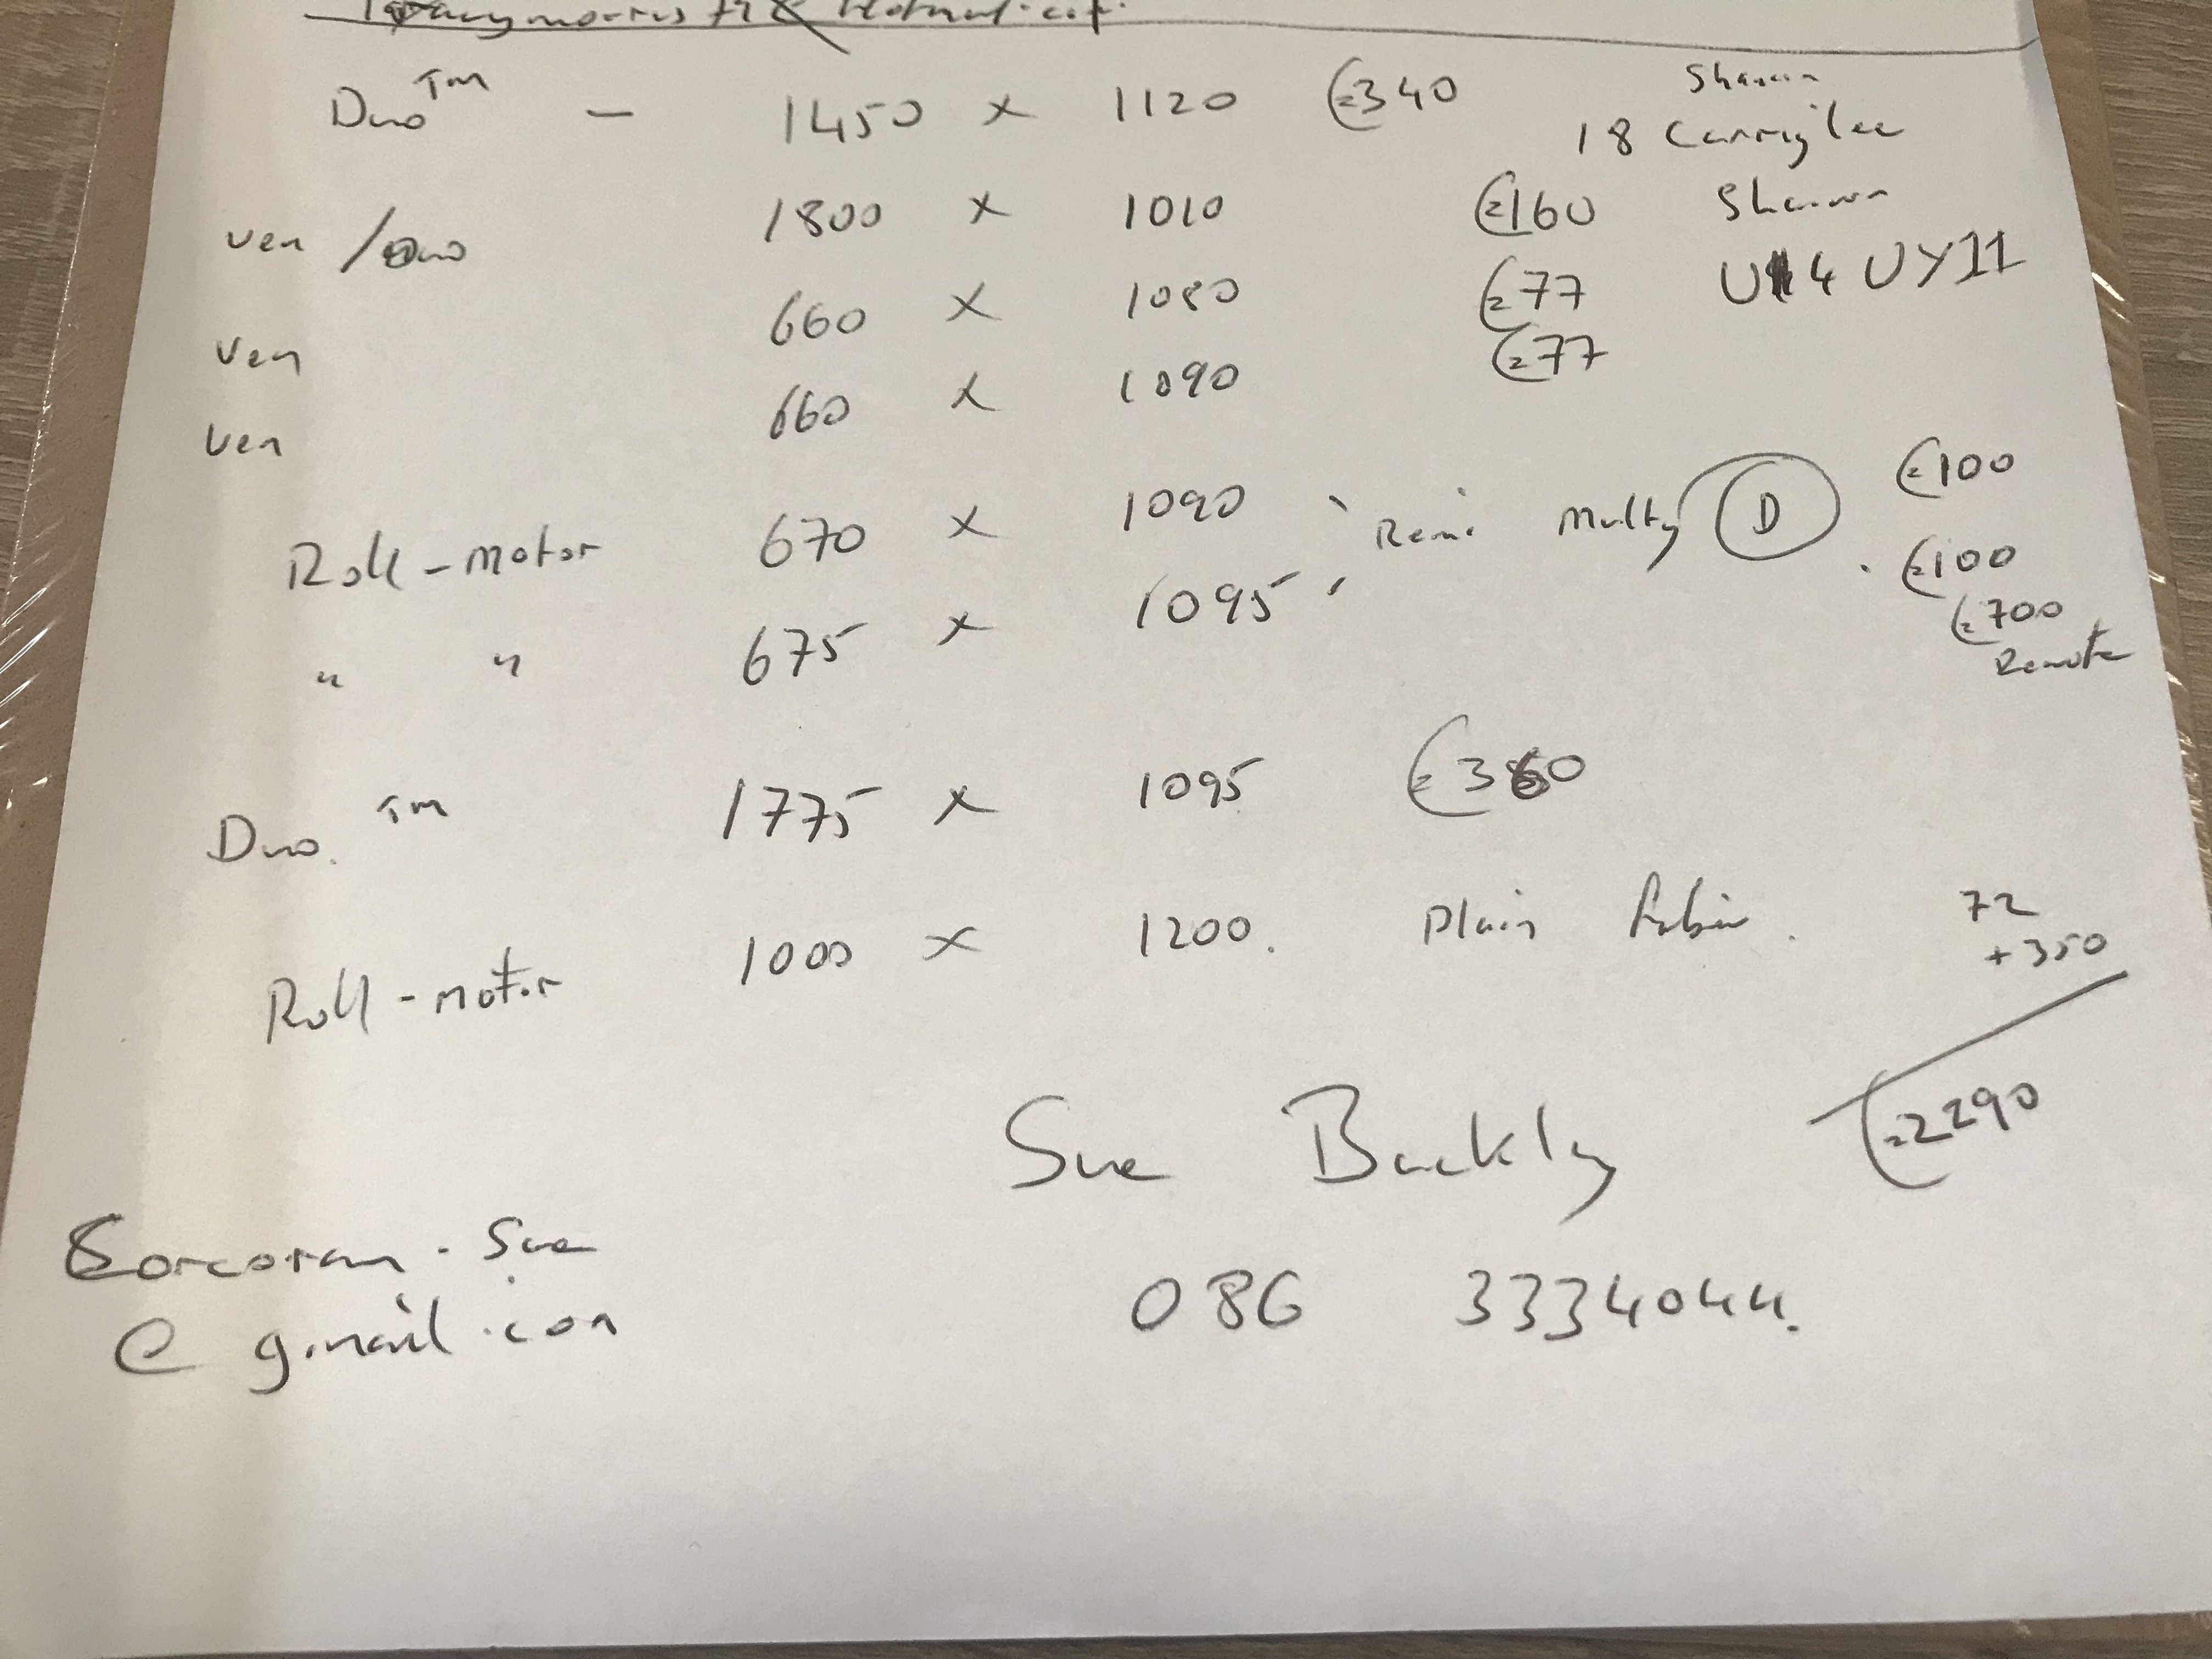 Duo TM - 1450 x 1120 €340
18
ven / Duo 1800 x 1010 €160
ven 660 x 1080 €77
U4 UY11
ven 660 x 1090 €77
Roll - motor 670 x 1090 Remi Multy D €100
" " 675 x 1095 €100
€700
Remote
Duo. TM 1775 x 1095 €360
Roll - motor 1000 x 1200. Plain 72
+350
€2290
Sue Buckly
Corcoran . Sue
@ gmail .com
086 3334044.